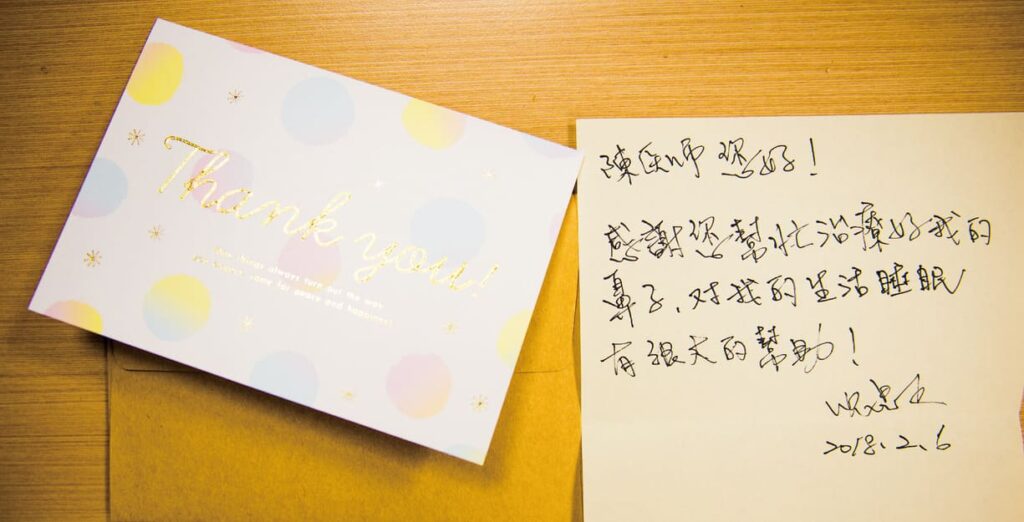 Thank you!
陳医师 您好！
感謝您幫忙治療好我的
鼻子，对我的生活睡眠
有很大的幫助！
2018.2.6